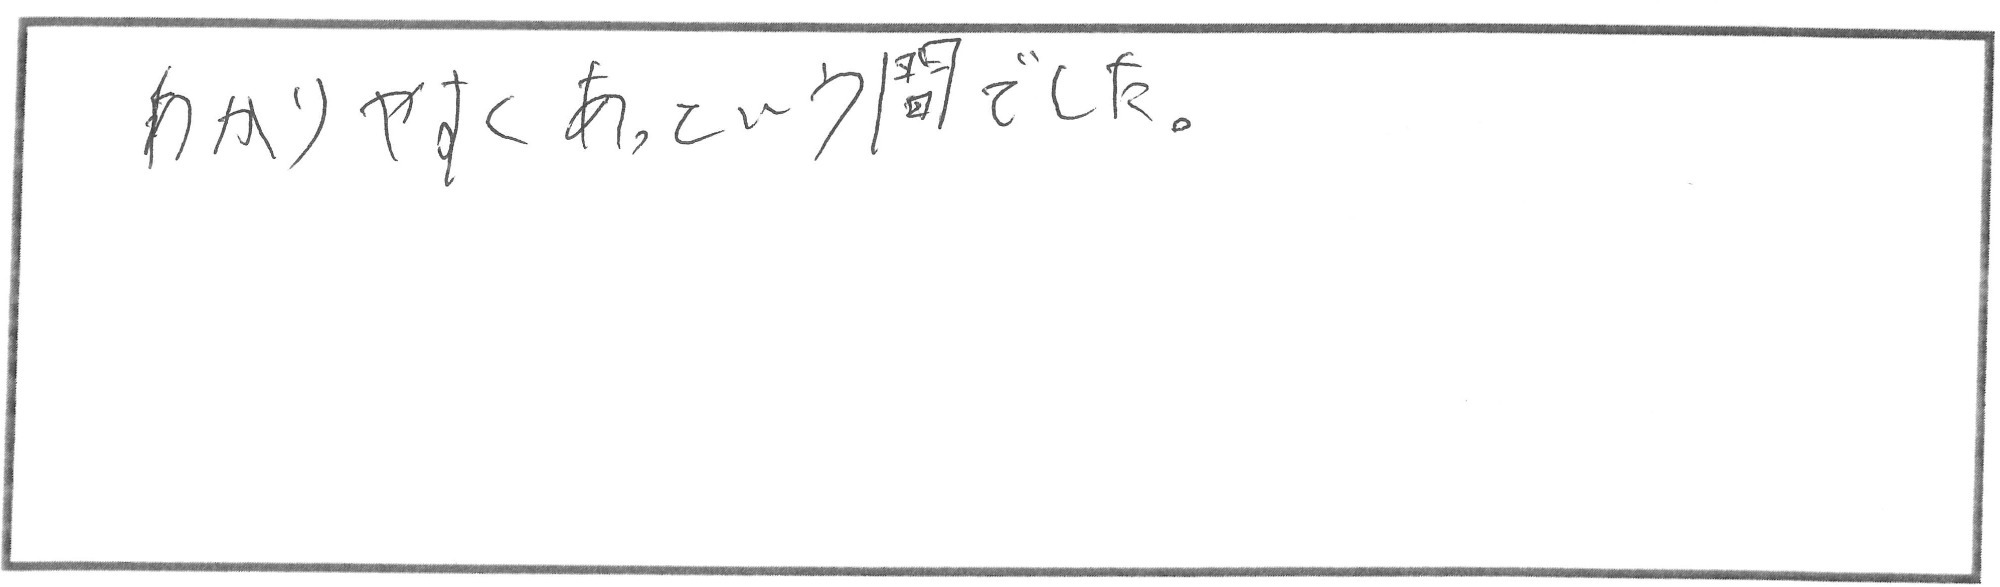 わかりやすくあっという間でした。